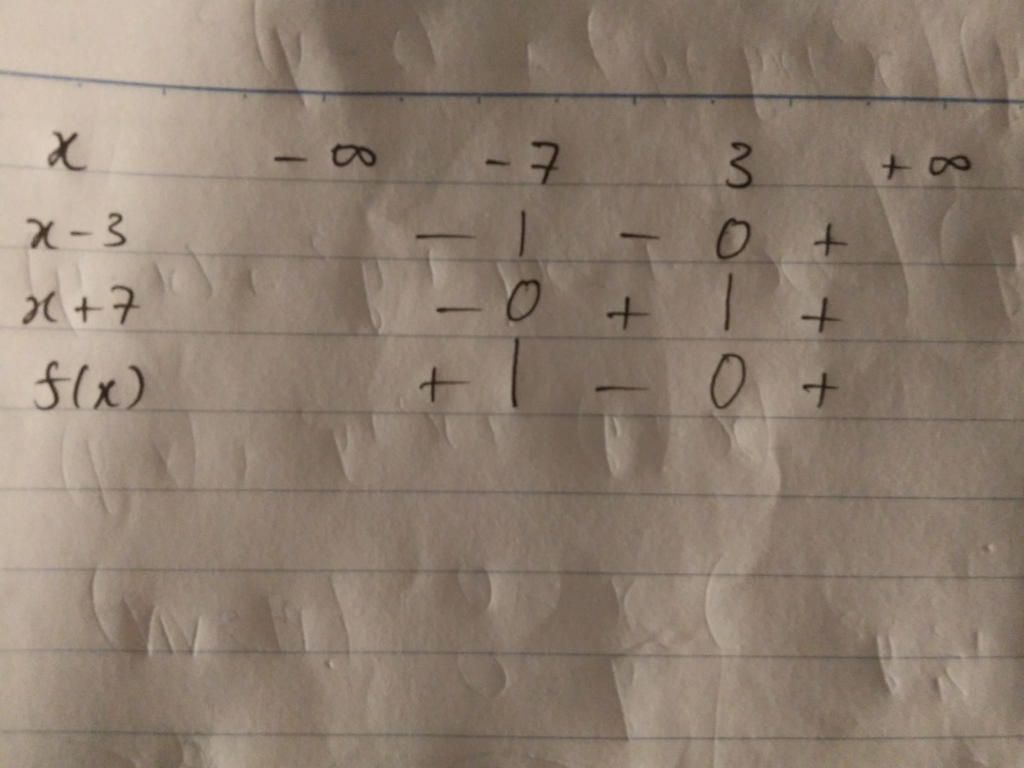 x - ∞ - 7 3 + ∞
x - 3 - | - 0 +
x + 7 - 0 + | +
f(x) + | - 0 +